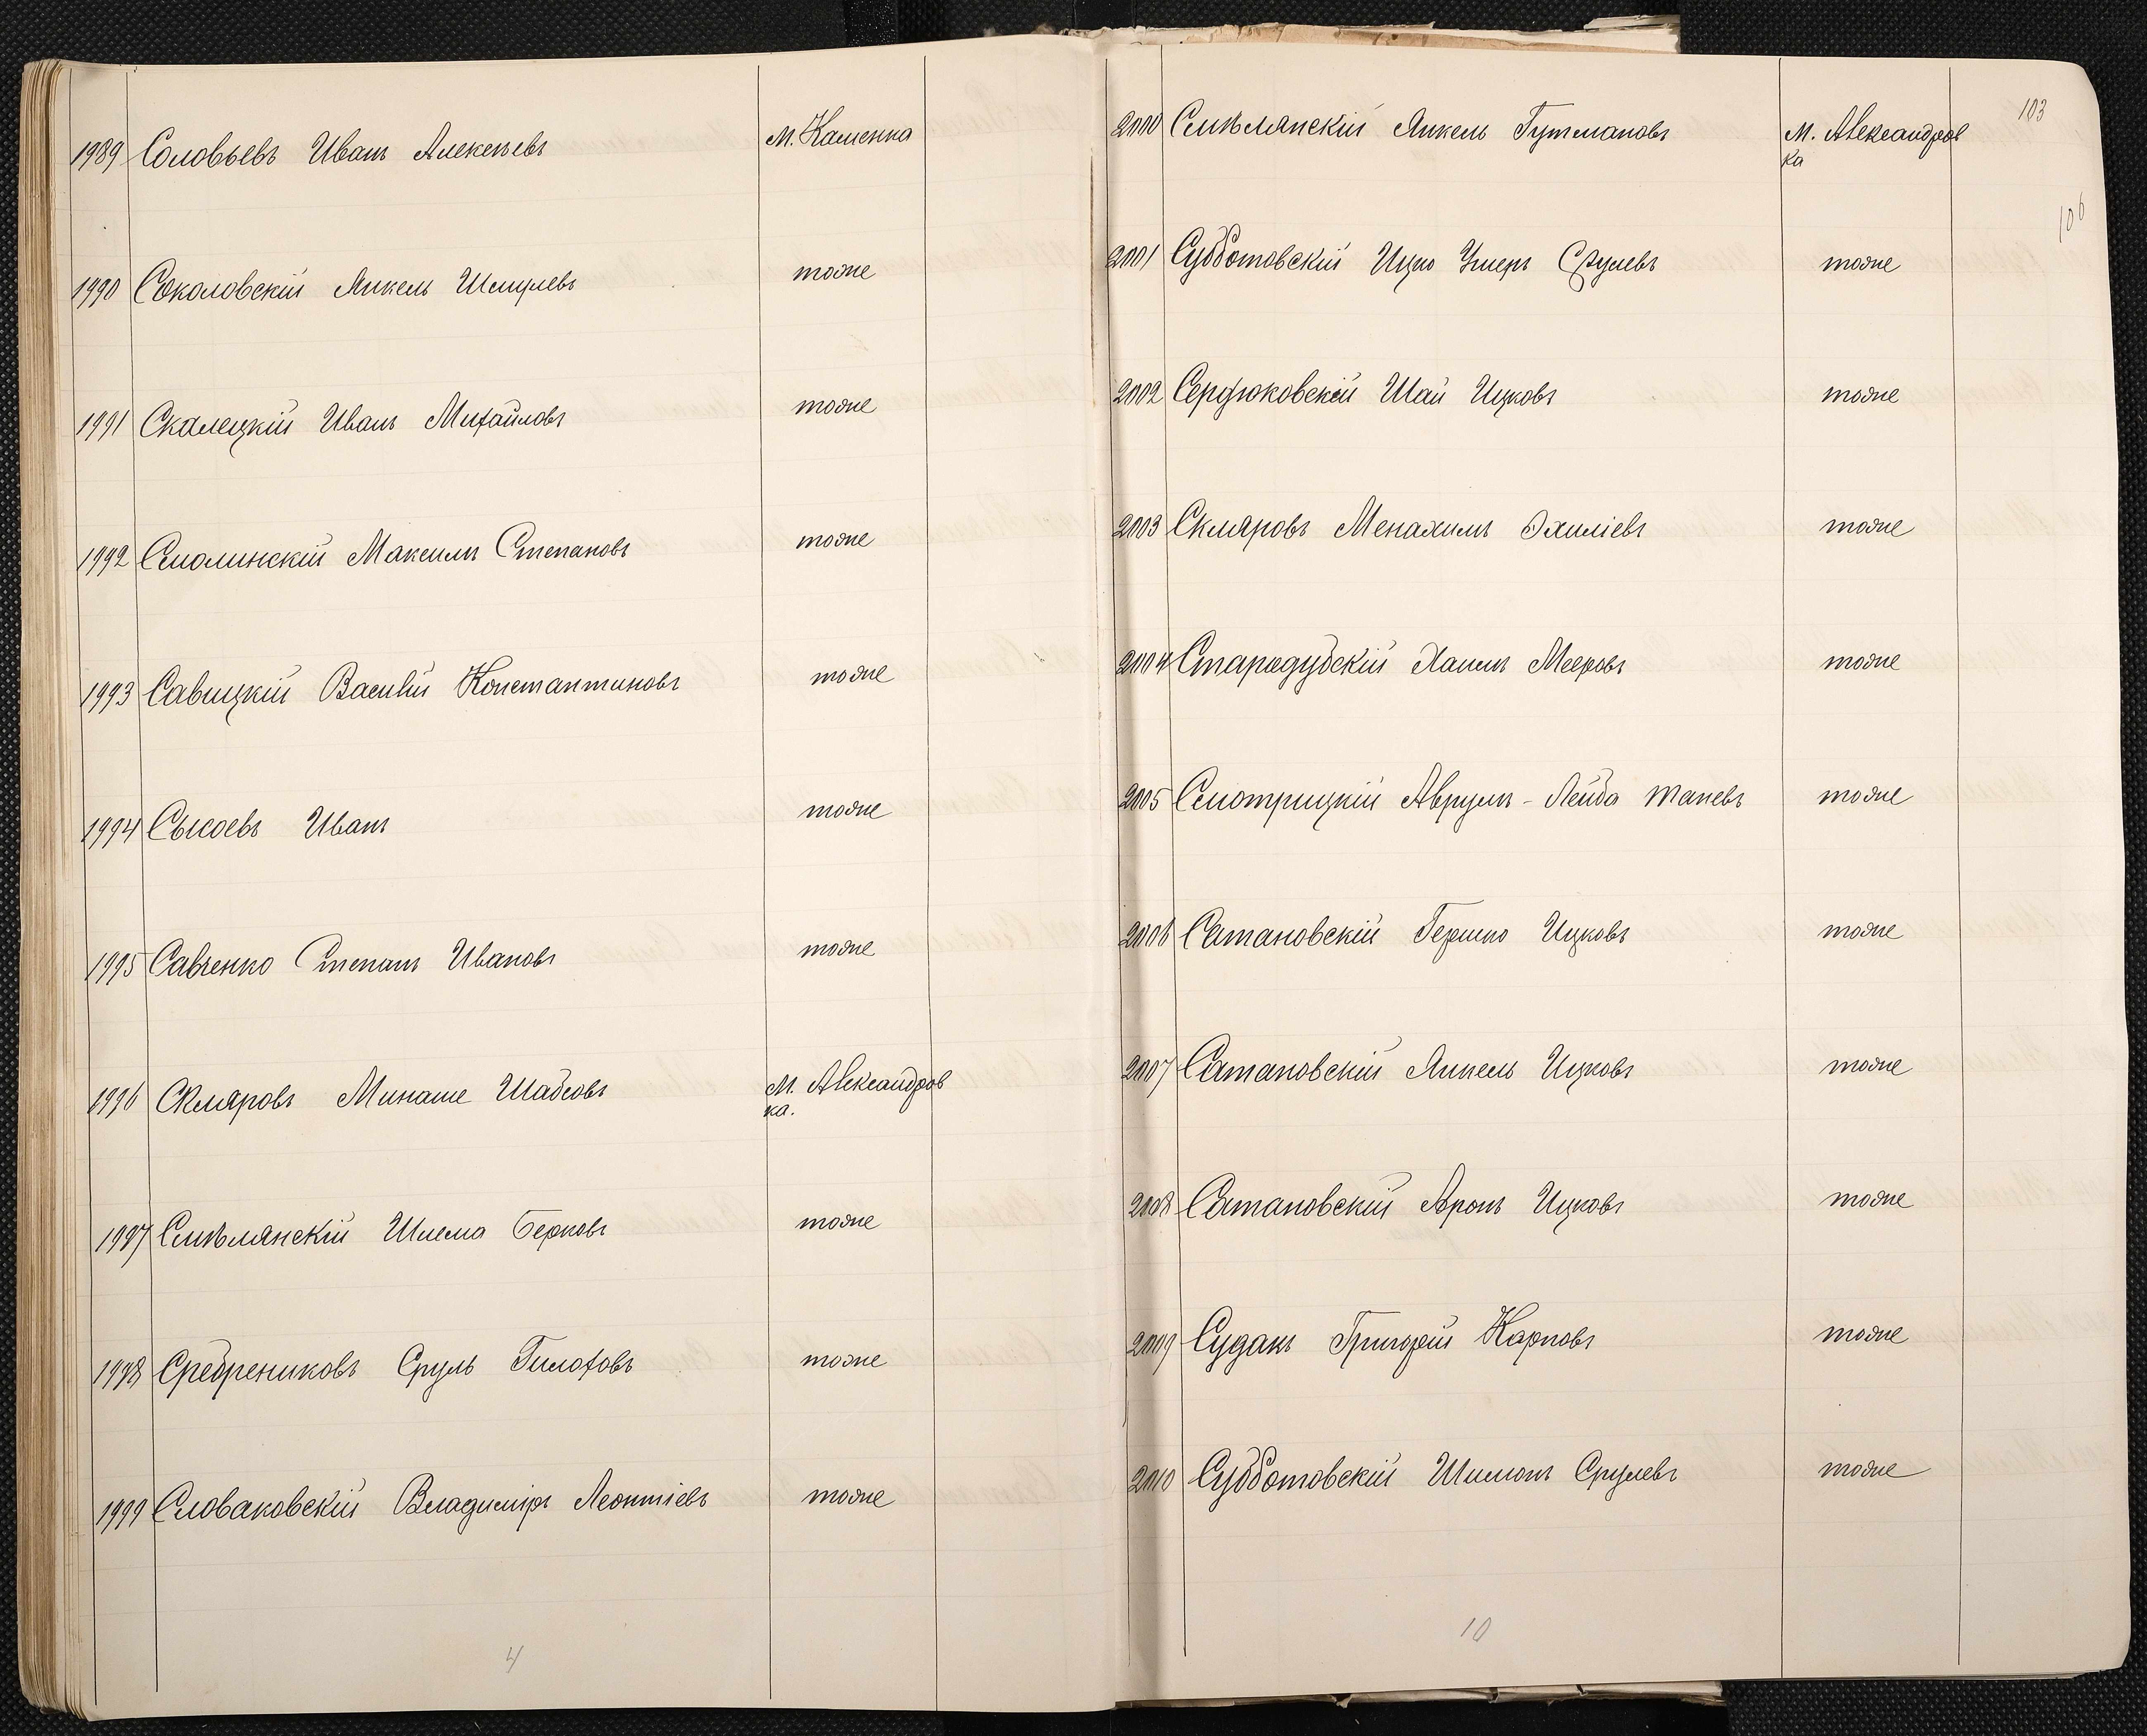 1989 Соловьевъ Иванъ Алексѣевъ М. Каменка
1990 Соколовскій Янкель Шмулевъ тоже
1991 Скалецкій Иванъ Михайловъ тоже
1992 Смолинскій Максимъ Степановъ тоже
1993 Савицкій Василій Константиновъ тоже
1994 Сысоевъ Иванъ тоже
1995 Савченко Степанъ Ивановъ тоже
1996 Скляровъ Минаше Шабсовъ М. Александров
ка.
1997 Смѣлянскій Шлема Берковъ тоже
1998 Сребрениковъ Сруль Гилоховъ тоже
1999 Словаковскій Владиміръ Леонтіевъ тоже
4
103
2000 Смѣлянскій Янкель Гутмановъ М. Александров
ка
106
2001 Субботовскій Ицко Ушеръ Срулевъ тоже
2002 Сердюковскій Шая Ицковъ тоже
2003 Скляровъ Менахимъ Эхиліевъ тоже
2004 Старадубскій Хаимъ Мееровъ тоже
2005 Смотрицкій Аврумъ-Лейба Таневъ тоже
2006 Сатановскій Гершко Ицковъ тоже
2007 Сатановскій Янкель Ицковъ тоже
2008 Сатановскій Аронъ Ицковъ тоже
2009 Судакъ Григорій Карповъ тоже
2010 Субботовскій Шимонъ Срулевъ тоже
10